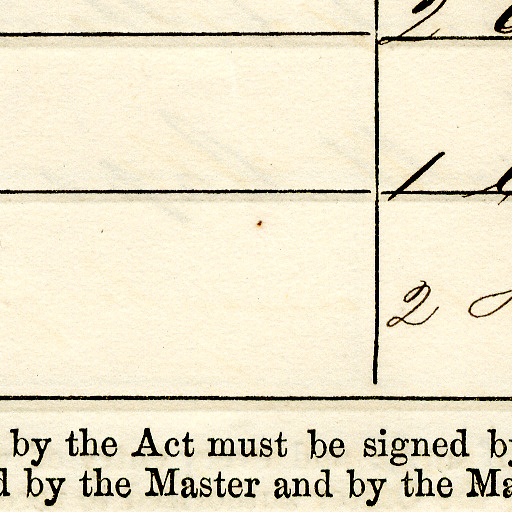 2
1
2
by the Act must be signed by
by the Master and by the Ma